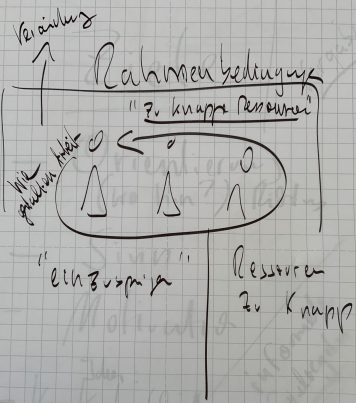 Veränderung
Rahmenbedingungen
"Zu knappe Ressourcen"
Wie
gestalten Arbeit
"einzuspringen"
Ressourcen
zu knapp